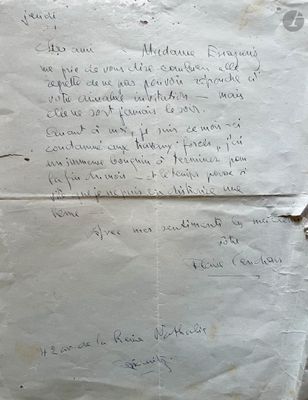 jeudi
Cher ami Madame Errazuriz
me prie de vous dire combien elle
regrette de ne pas pouvoir répondre à
votre aimable invitation — mais
elle ne sort jamais le soir.
Quant à moi, je suis ce mois-ci
condamné aux travaux forcés, j'ai
un immense bouquin à terminer pour
la fin du mois — et le temps passe à
que je ne puis en distraire une
heure
Avec mes sentiments les meilleurs
votre
Blaise Cendrars
42 av. de la Reine Nathalie
Biarritz